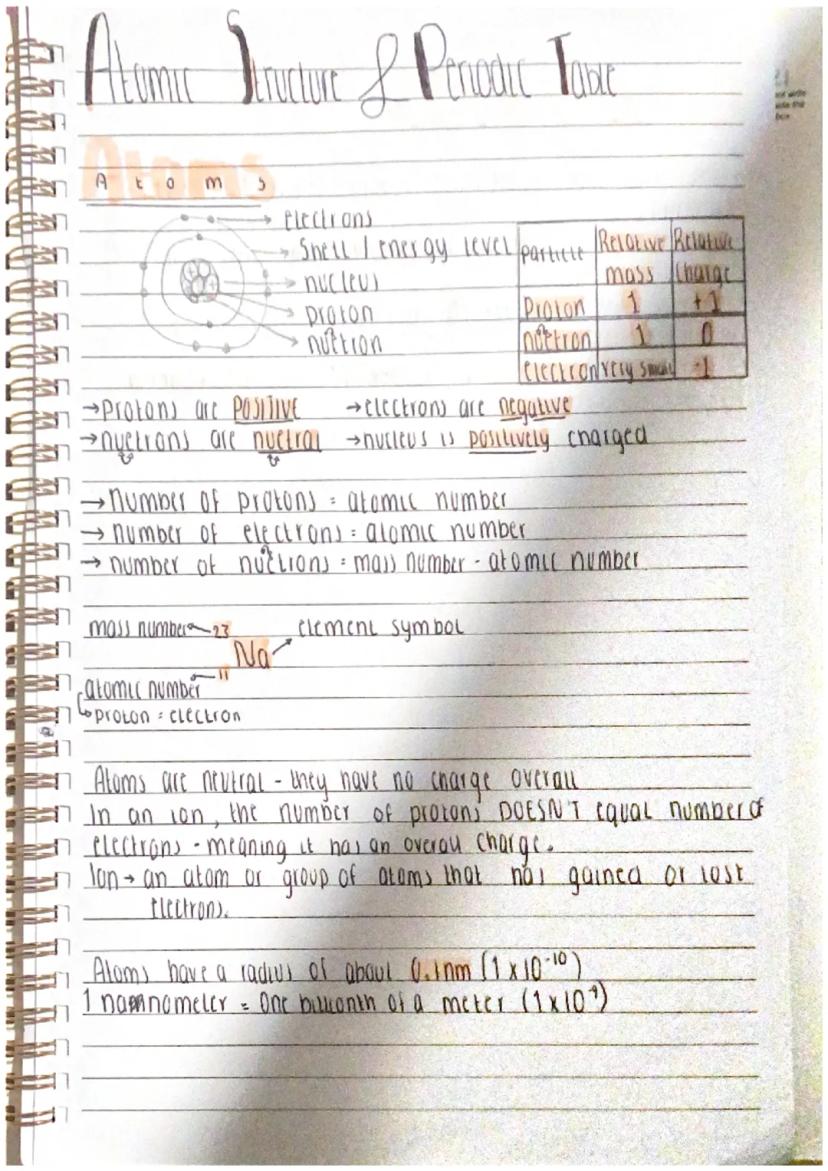 Atomic Structure & Periodic Table
Atoms
Atoms
electrons
shell / energy level
nucleus
proton
nuetron
particle Relative mass Relative charge
proton 1 +1
nuetron 1 0
electron very small -1
→ Protons are POSITIVE → electrons are negative
→ nuetrons are nuetral → nucleus is positively charged
→ number of protons = atomic number
→ number of electrons = atomic number
→ number of nuetrons = mass number - atomic number
mass number 23 element symbol
Na
11
atomic number
proton = electron
Atoms are neutral - they have no charge overall
In an ion, the number of protons DOESN'T equal number of
electrons - meaning it has an overall charge.
Ion → an atom or group of atoms that has gained or lost
electrons.
Atoms have a radius of about 0.1nm (1 x 10⁻¹⁰)
1 nannometer = One billionth of a meter (1 x 10⁻⁹)